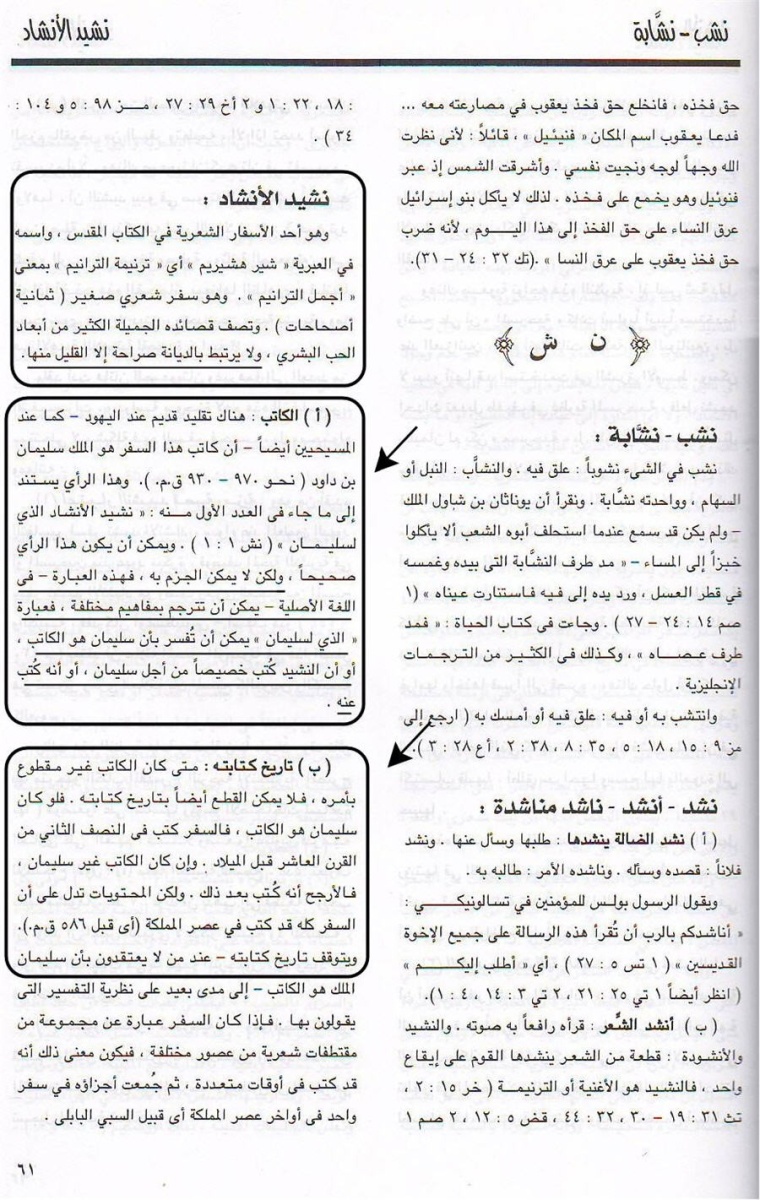 نشب – نشَّابة
نشيد الأنشاد
حق فخذه ، فانخلع حق فخذ يعقوب في مصارعته معه ...
فدعا يعقوب اسم المكان « فنيئيل » ، قائلاً : لأنى نظرت
الله وجهاً لوجه ونجيت نفسي . وأشرقت الشمس إذ عبر
فنوئيل وهو يخمع على فخذه . لذلك لا يأكل بنو إسرائيل
عرق النساء على حق الفخذ إلى هذا اليــوم ، لأنه ضرب
حق فخذ يعقوب على عرق النسا » .(تك ٣٢ : ٢٤ – ٣١).
﴿ ن ش ﴾
نشب – نشَّابة :
نشب في الشىء نشوباً : علق فيه . والنشاَّب : النبل أو
السهام ، وواحدته نشَّابة . ونقرأ أن يوناثان بن شاول الملك
– ولم يكن قد سمع عندما استحلف أبوه الشعب ألا يأكلوا
خبزاً إلى المساء – « مد طرف النشَّابة التى بيده وغمسه
في قطر العسل ، ورد يده إلى فيه فاستنارت عيناه » (١
صم ١٤ : ٢٤ – ٢٧ ) . وجاءت فى كتاب الحياة : « فمد
طرف عصــاه » ، وكذلك فى الكثير من الترجمـات
الإنجليزية .
وانتشب به أو فيه : علق فيه أو أمسك به ( ارجع إلى
مز ٩ : ١٥ ، ١٨ : ٥ ، ٣٥ : ٨ ، ٣٨ : ٢ ، أع ٢٨ : ٣ ).
نشد – أنشد – ناشد مناشدة :
( أ ) نشد الضالة ينشدها : طلبها وسأل عنها . ونشد
فلاناً : قصده وسأله . وناشده الأمر : طالبه به .
ويقول الرسول بولس للمؤمنين في تسالونيكــي :
« أناشدكم بالرب أن تُقرأ هذه الرسالة على جميع الإخوة
القديسين » ( ١ تس ٥ : ٢٧ ) ، أي « أطلب إليكــم »
( انظر أيضاً ١ تي ٥: ٢١ ، ٢ تي ٣ : ١٤ ، ٤ : ١).
( ب ) أنشد الشِّعر : قرأه رافعاً به صوته . والنشيد
والأنشودة : قطعة من الشعر ينشدها القوم على إيقاع
واحد ، فالنشيد هو الأغنية أو الترنيمــة ( خر ١٥ : ٢ ،
تث ٣١ : ١٩ – ٣٠ ، ٣٢ : ٤٤ ، قض ٥ : ١٢ ، ٢ صم ١
: ١٨ ، ٢٢ : ١ و ٢ أخ ٢٩ : ٢٧ ، مــز ٩٨ : ٥ و ١٠٤ :
٣٤ ) .
نشيد الأنشاد :
وهو أحد الأسفار الشعرية في الكتاب المقدس ، واسمه
في العبرية « شير هشيريم » أي « ترنيمة الترانيم » بمعنى
« أجمل الترانيم » . وهو سفر شعري صغير ( ثمانية
أصحاحات ) . وتصف قصائده الجميلة الكثير من أبعاد
الحب البشري ، ولا يرتبط بالديانة صراحة إلا القليل منها.
( أ ) الكاتب : هناك تقليد قديم عند اليهود – كما عند
المسيحيين أيضاً – أن كاتب هذا السفر هو الملك سليمان
بن داود ( نحـو ٩٧٠ – ٩٣٠ ق.م. ). وهذا الرأي يستند
إلى ما جاء فى العدد الأول منـه : « نشيد الأنشاد الذي
لسليـمـان » ( نش ١ : ١ ) . ويمكن أن يكون هذا الرأي
صحيحاً ، ولكن لا يمكن الجزم به ، فهذه العبارة – فى
اللغة الأصلية – يمكن أن تترجم بمفاهيم مختلفة ، فعبارة
« الذي لسليمان » يمكن أن تُفسر بأن سليمان هو الكاتب ،
أو أن النشيد كُتب خصيصاً من أجل سليمان ، أو أنه كُتب
عنه .
( ب ) تاريخ كتابته : متى كان الكاتب غير مقطوع
بأمره ، فلا يمكن القطع أيضاً بتاريخ كتابته . فلو كان
سليمان هو الكاتب ، فالسفر كتب فى النصف الثانى من
القرن العاشر قبل الميلاد . وإن كان الكاتب غير سليمان ،
فالأرجح أنه كُتب بعد ذلك . ولكن المحتويات تدل على أن
السفر كله قد كتب في عصر المملكة (أى قبل ٥٨٦ ق.م.).
ويتوقف تاريخ كتابته – عند من لا يعتقدون بأن سليمان
الملك هو الكاتب – إلى مدى بعيد على نظرية التفسير التى
يقولون بها . فإذا كان السفر عبارة عن مجموعة من
مقتطفات شعرية من عصور مختلفة ، فيكون معنى ذلك أنه
قد كتب فى أوقات متعددة ، ثم جمعت أجزاؤه في سفر
واحد فى أواخر عصر المملكة أى قبيل السبي البابلى .
٦١